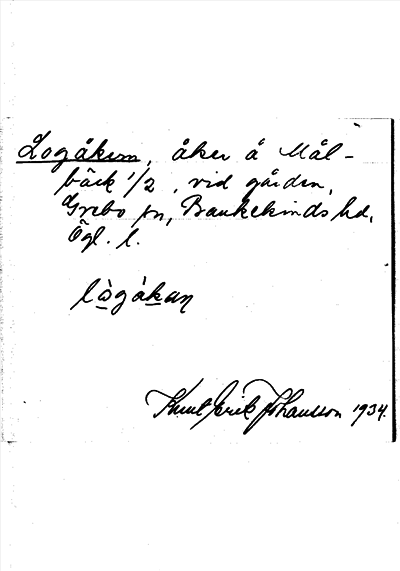 Logåkern, åker å Mål-
bäck 1/2, vid gården,
Grebo sn, Bankekinds hd,
Ögl. l.
lògåkaɳ
Knut Erik Johansson 1934.